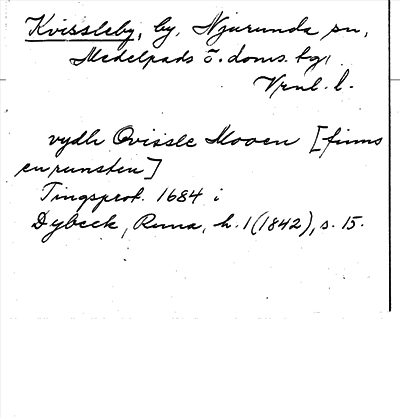 Kvissleby, by, Njurunda sn,
Medelpads ö. doms. hg,
Vrnl. l.
vydh Qvissle Mooen [finns
en runsten]
Tingsprot. 1684 i
Dybeck, Runa, h. 1 (1842), s. 15.